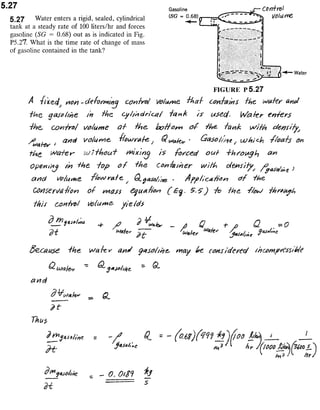 5.27
5.27 Water enters a rigid, sealed, cylindrical
tank at a steady rate of 100 liters/hr and forces
gasoline (SG = 0.68) out as is indicated in Fig.
P5.27. What is the time rate of change of mass
of gasoline contained in the tank?
Gasoline
(SG = 0.68)
control
volume
Water
FIGURE P5.27
A fixed, non-deforming control volume that contains the water and
the gasoline in the cylindrical tank is used. Water enters
the control volume at the bottom of the tank with density,
ρwater, and volume flowrate, Qwater. Gasoline, which floats on
the water without mixing is forced out through an
opening in the top of the container with density, ρgasoline,
and volume flowrate, Qgasoline. Application of the
conservation of mass equation (Eq. 5.5) to the flow through
this control volume yields
∂mgasoline/∂t + ρwater ∂Vwater/∂t - ρwater Qwater + ρgasoline Qgasoline = 0
Because the water and gasoline may be considered incompressible
Qwater = Qgasoline = Q
and
∂Vwater/∂t = Q
Thus
∂mgasoline/∂t = -ρgasoline Q = -(0.68)(999 kg/m³)(100 liters/hr)(1/(1000 liters/m³))(1/(3600 s/hr))
∂mgasoline/∂t = -0.0189 kg/s